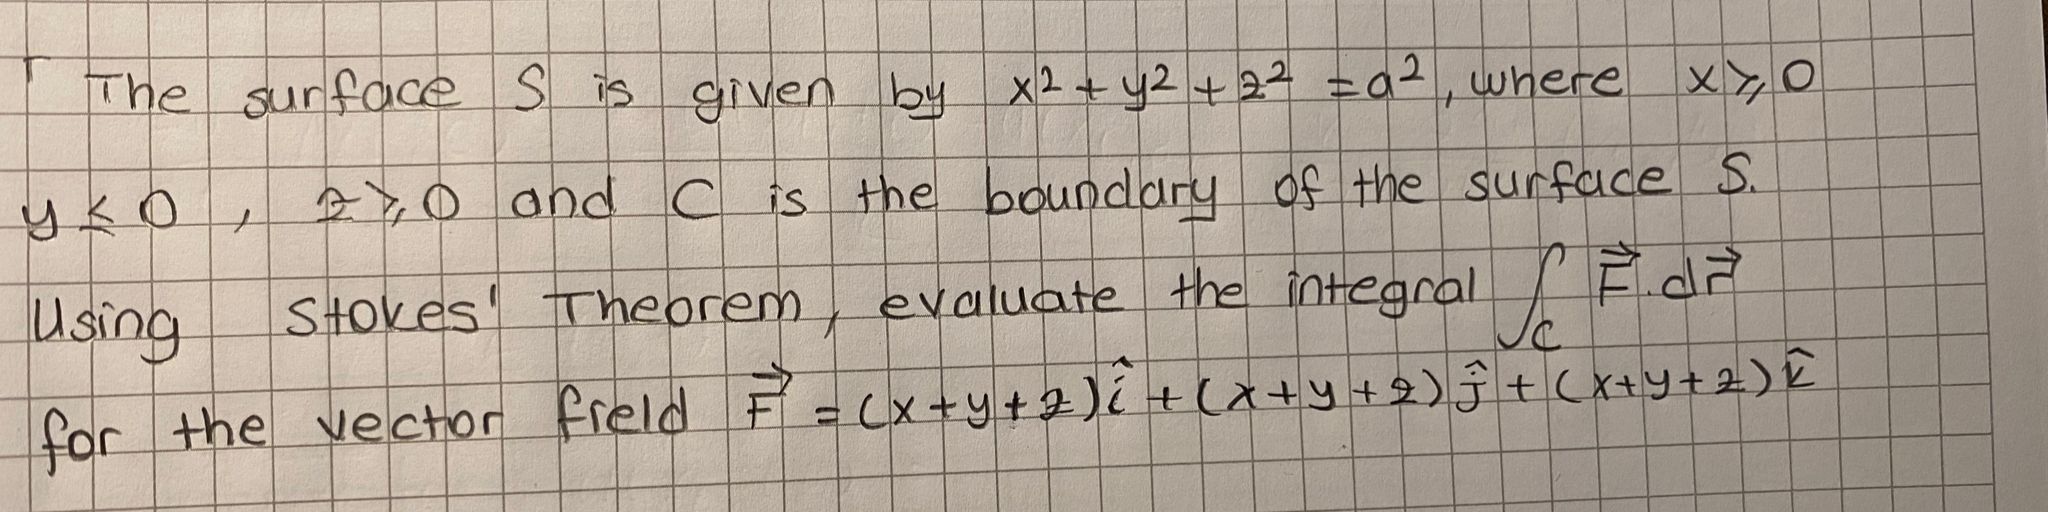 The surface S is given by x² + y² + z² = a², where x ≥ 0
y ≤ 0, z ≥ 0 and C is the boundary of the surface S.
Using Stokes' Theorem, evaluate the integral ∫_C F⃗.dr⃗
for the vector field F⃗ = (x+y+z)î + (x+y+z)ĵ + (x+y+z)k̂